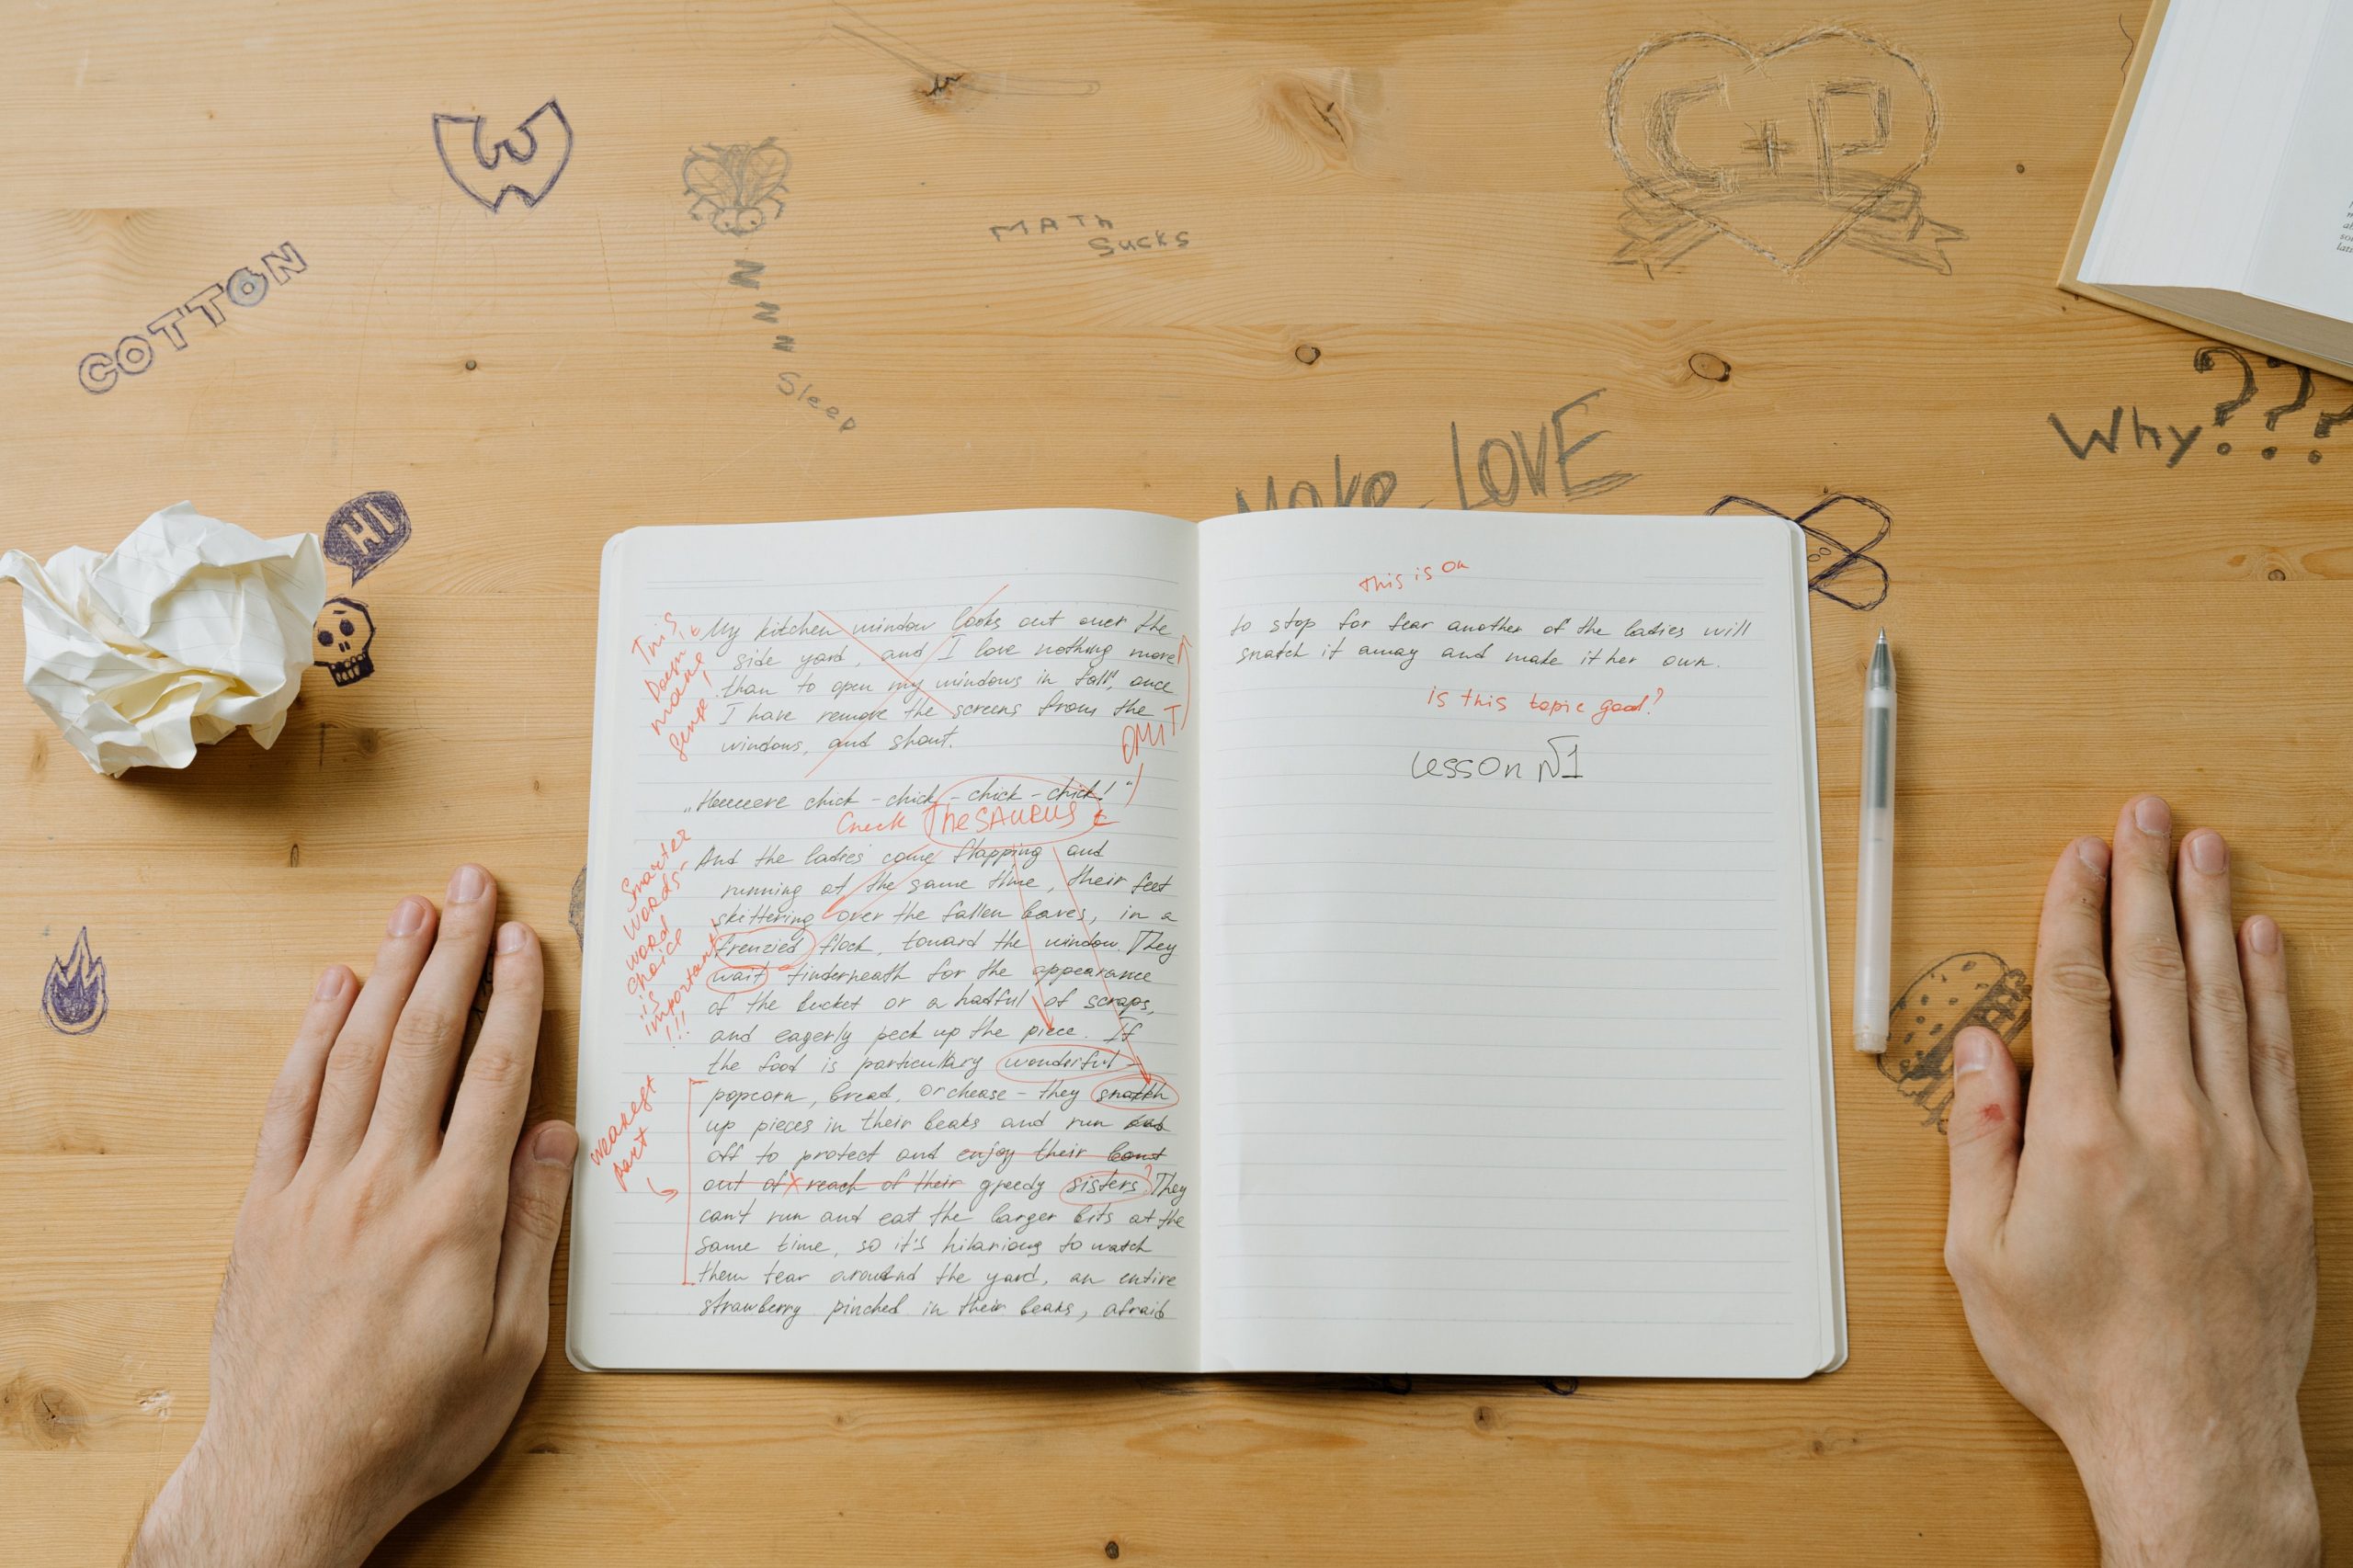 C+P
W
MATH
SUCKS
COTTON
Z
Z
Z
Sleep
Why???
Make LOVE
HI
This
Doesn't
make
sense!
My kitchen window looks out over the
side yard, and I love nothing more
than to open my windows in fall, once
I have remove the screens from the
windows, and shout.
OMIT
chick-chick-chick-chick!"
Check Thesaurus
And the ladies come flapping and
running at the same time, their feet
skittering over the fallen leaves, in a
frenzied flock, toward the window. They
wait underneath for the appearance
of the bucket or a hatful of scraps,
and eagerly peck up the piece. If
the food is particulary wonderful -
popcorn, bread, or chease - they snatch
up pieces in their beaks and run
off to protect and enjoy their
out of reach of their greedy sisters? They
can't run and eat the larger bits at the
same time, so it's hilarious to watch
them tear around the yard, an entire
strawberry pinched in their beaks, afraid
Smarter
words-
word
choice
is
important
!!!
weakest
part
This is on
to stop for fear another of the ladies will
snatch it away and make it her own.
is this topic good?
Lesson №1